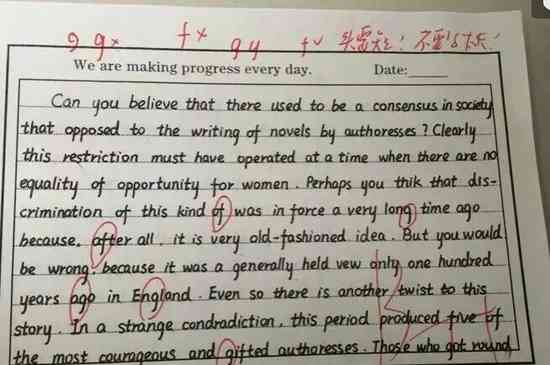 g gx fx gy fv 头要短! 不要
We are making progress every day. Date:
Can you believe that there used to be a consensus in society
that opposed to the writing of novels by authoresses? Clearly
this restriction must have operated at a time when there are no
equality of opportunity for women. Perhaps you thik that dis-
crimination of this kind of was in force a very long time ago
because, after all, it is very old-fashioned idea. But you would
be wrong: because it was a generally held vew only one hundred
years ago in England. Even so there is another twist to this
story. In a strange condradiction, this period produced five of
the most courageous and gifted authoresses. Those who got round